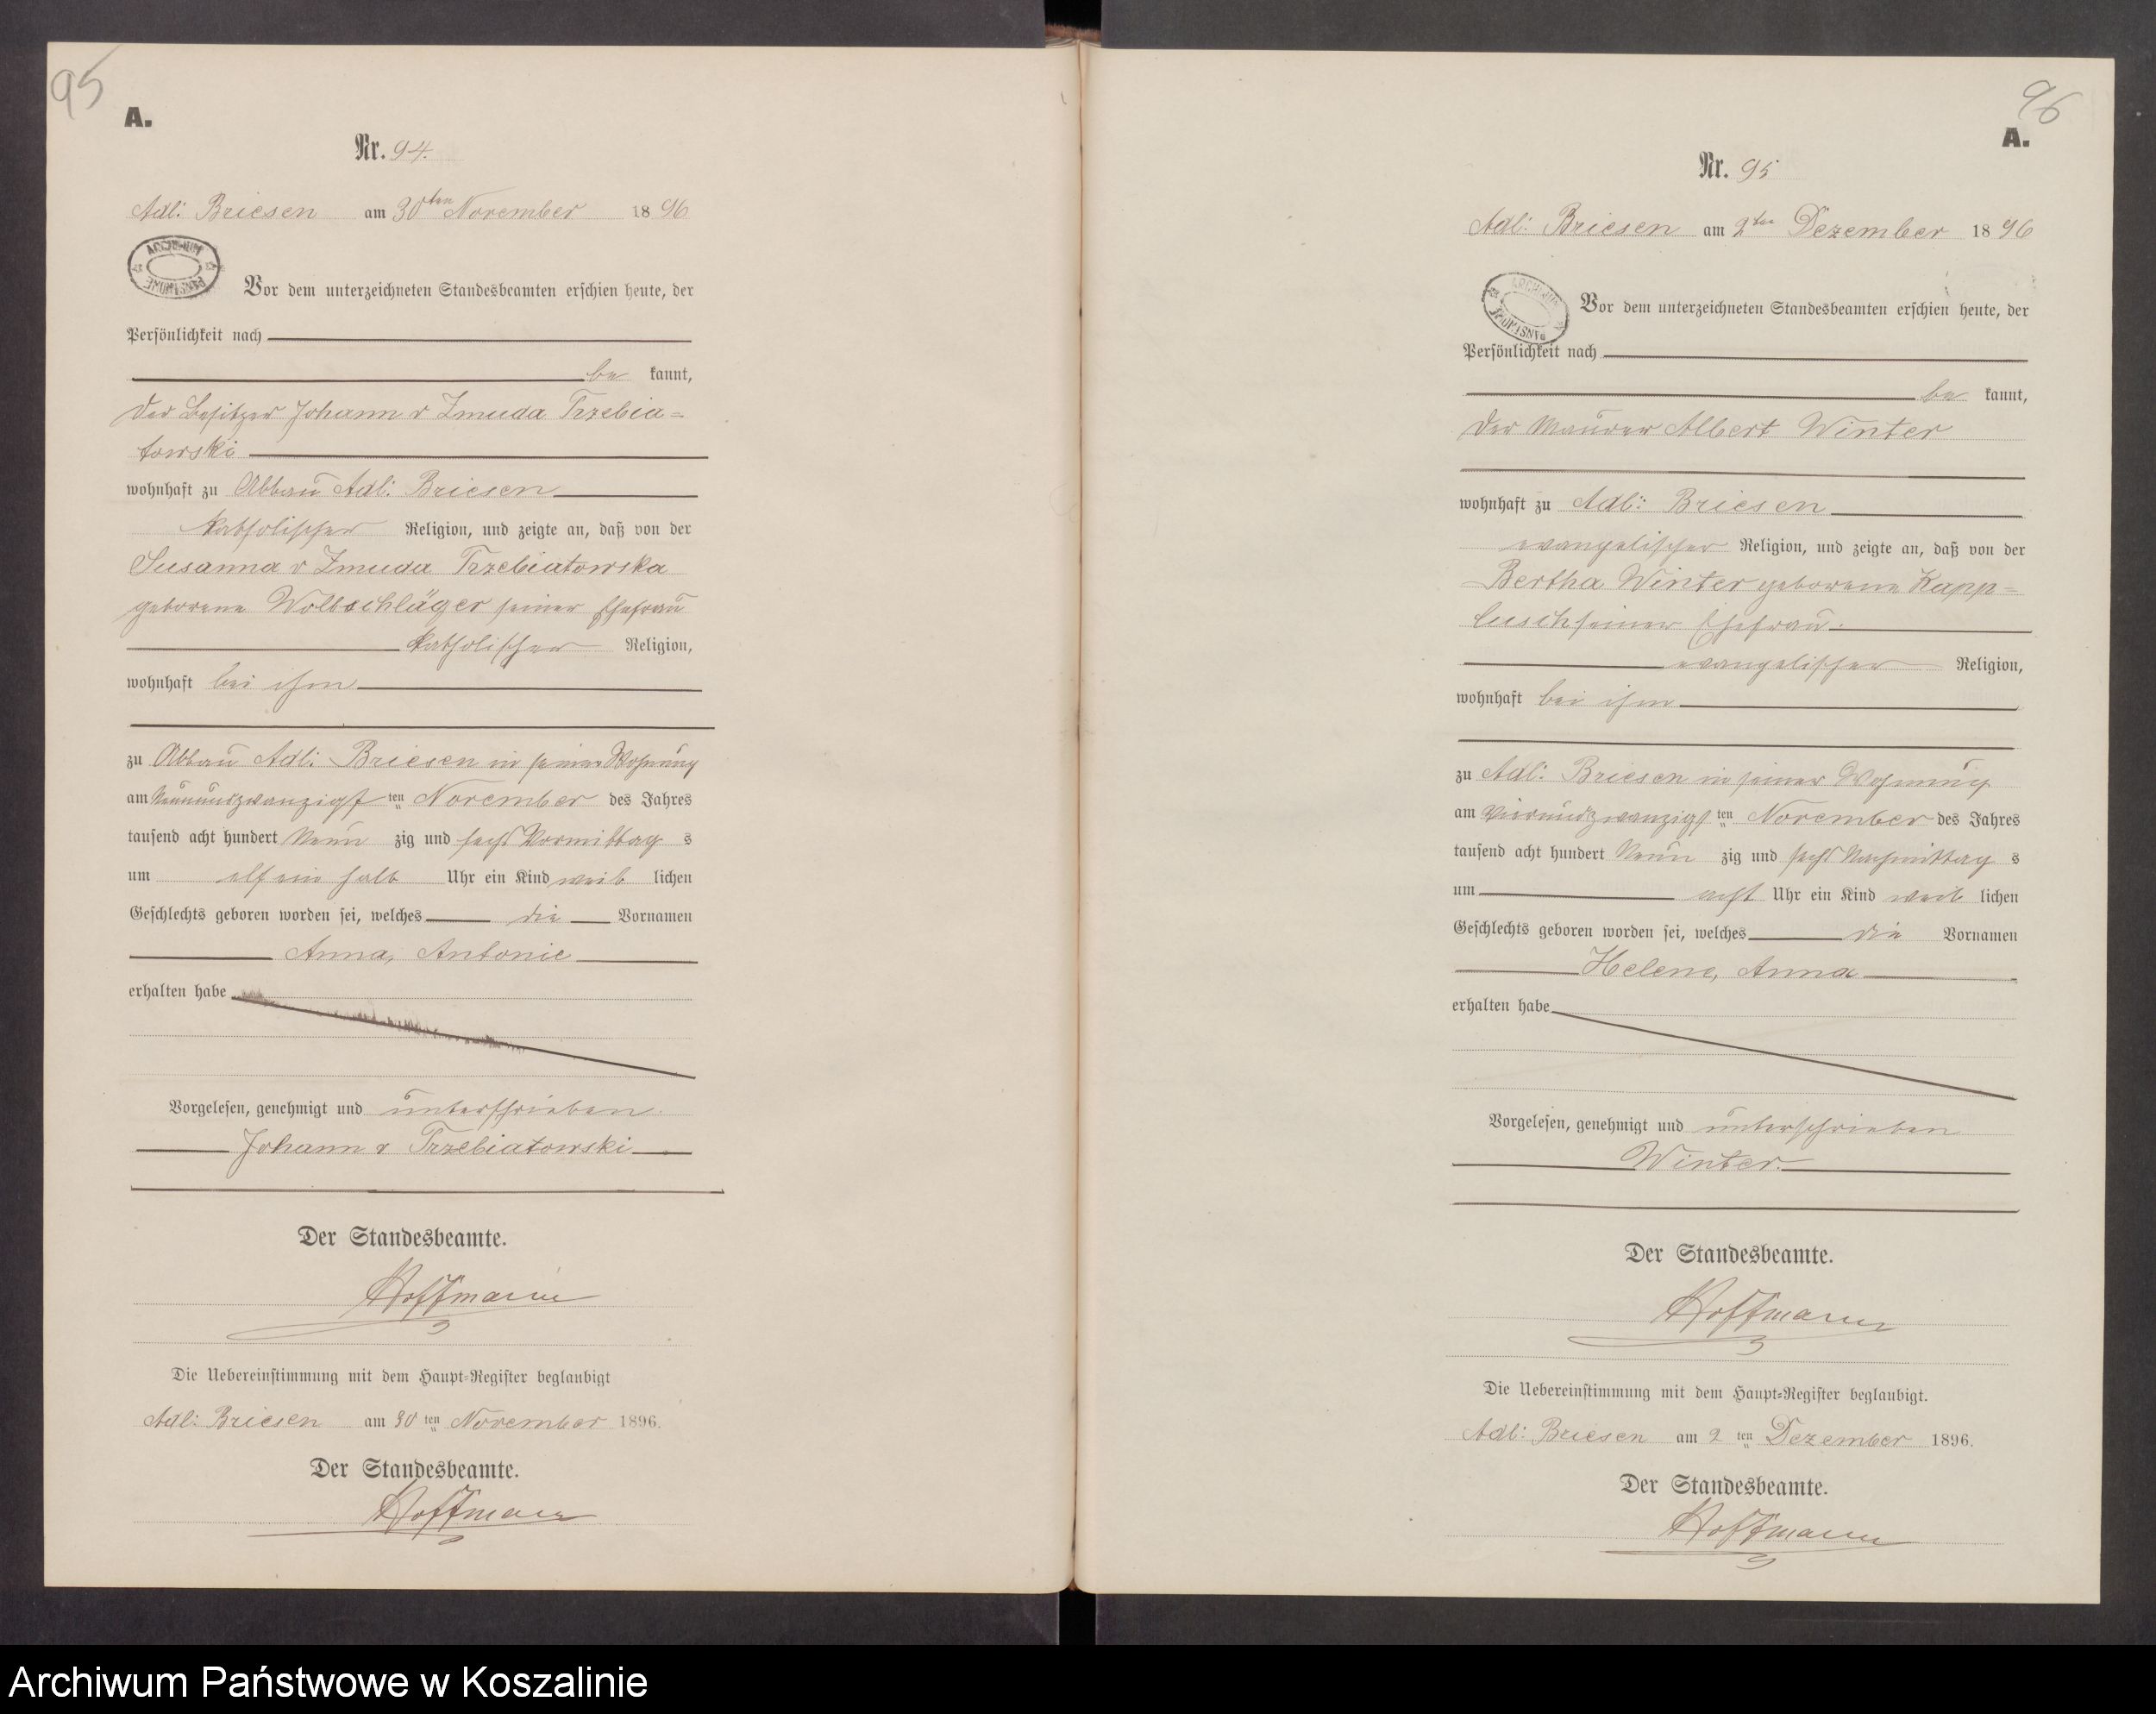 95
A.
Nr. 94.
Adl: Briesen am 30ten November 1896
ARCHIWUM PAŃSTWOWE
Vor dem unterzeichneten Standesbeamten erschien heute, der
Persönlichkeit nach
be kannt,
der Besitzer Johann v Zmuda Trzebia=
towski
wohnhaft zu Abbau Adl: Briesen
katholischer Religion, und zeigte an, daß von der
Susanna v Zmuda Trzebiatowska
geborene Wollschläger seiner Ehefrau
katholischer Religion,
wohnhaft bei ihm
zu Abbau Adl: Briesen in seiner Wohnung
am Neunundzwanzigsten November des Jahres
tausend acht hundert Neun zig und sechs Vormittag s
um elf ein halb Uhr ein Kind weib lichen
Geschlechts geboren worden sei, welches die Vornamen
Anna, Antonie
erhalten habe
Vorgelesen, genehmigt und unterschrieben.
Johann v Trzebiatowski
Der Standesbeamte.
Hoffmann
Die Uebereinstimmung mit dem Haupt-Register beglaubigt
Adl: Briesen am 30 ten November 1896.
Der Standesbeamte.
Hoffmann
96
A.
Nr. 95
Adl: Briesen am 2ten Dezember 1896
ARCHIWUM PAŃSTWOWE
Vor dem unterzeichneten Standesbeamten erschien heute, der
Persönlichkeit nach
be kannt,
der Maurer Albert Winter
wohnhaft zu Adl: Briesen
evangelischer Religion, und zeigte an, daß von der
Bertha Winter geborene Kapp=
lusch seiner Ehefrau.
evangelischer Religion,
wohnhaft bei ihm
zu Adl: Briesen in seiner Wohnung
am Vierundzwanzigsten November des Jahres
tausend acht hundert Neun zig und sechs Nachmittag s
um acht Uhr ein Kind weib lichen
Geschlechts geboren worden sei, welches die Vornamen
Helene, Anna
erhalten habe
Vorgelesen, genehmigt und unterschrieben
Winter.
Der Standesbeamte.
Hoffmann
Die Uebereinstimmung mit dem Haupt-Register beglaubigt.
Adl: Briesen am 2 ten Dezember 1896.
Der Standesbeamte.
Hoffmann
Archiwum Państwowe w Koszalinie